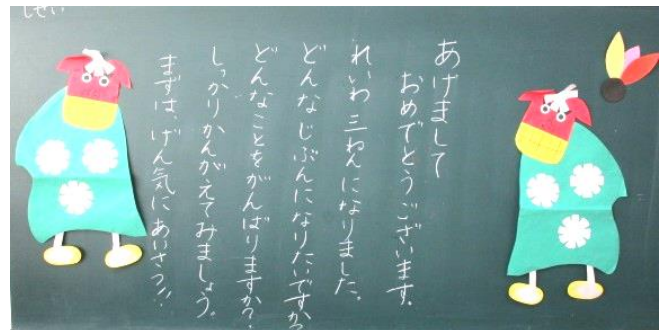 しせい
あけまして
おめでとうございます。
れいわ三ねんになりました。
どんなじぶんになりたいですか?
どんなことをがんばりますか?
しっかりかんがえてみましょう。
まずは、げん気にあいさつ!!